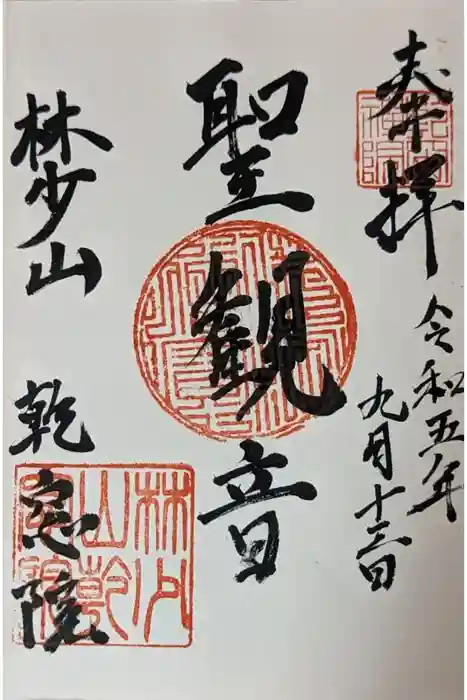 奉拝
令和五年
九月十三日
聖観音
林少山
乾窓院
林少
山乾
窓院